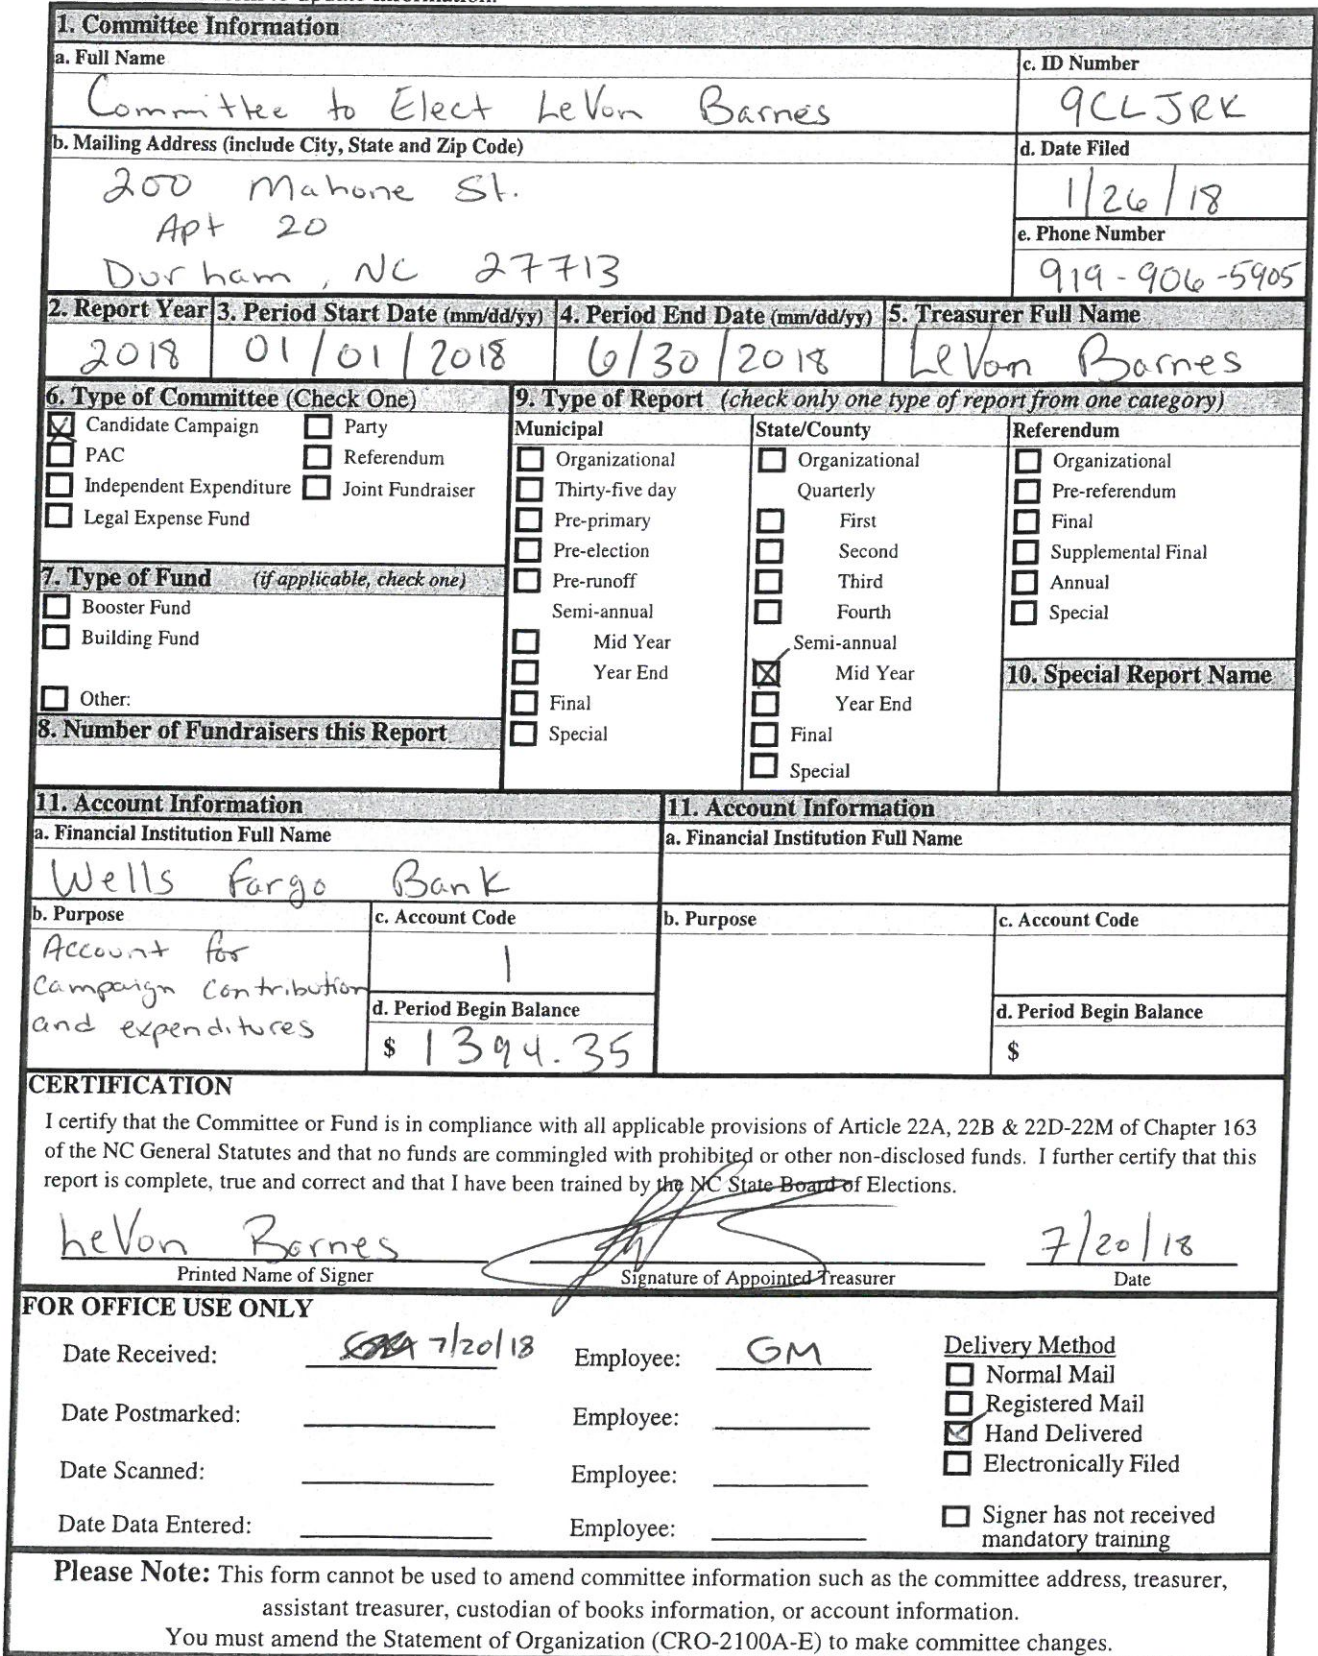 1. Committee Information
a. Full Name
c. ID Number
Committee to Elect LeVon Barnes
9CLJRK
b. Mailing Address (include City, State and Zip Code)
d. Date Filed
200 Mahone St.
Apt 20
Durham, NC 27713
1/26/18
e. Phone Number
919-906-5905
2. Report Year 3. Period Start Date (mm/dd/yy) 4. Period End Date (mm/dd/yy) 5. Treasurer Full Name
2018 01/01/2018 6/30/2018 LeVon Barnes
6. Type of Committee (Check One)
Candidate Campaign Party
PAC Referendum
Independent Expenditure Joint Fundraiser
Legal Expense Fund
7. Type of Fund (if applicable, check one)
Booster Fund
Building Fund
Other:
8. Number of Fundraisers this Report
9. Type of Report (check only one type of report from one category)
Municipal
Organizational
Thirty-five day
Pre-primary
Pre-election
Pre-runoff
Semi-annual
Mid Year
Year End
Final
Special
State/County
Organizational
Quarterly
First
Second
Third
Fourth
Semi-annual
Mid Year
Year End
Final
Special
Referendum
Organizational
Pre-referendum
Final
Supplemental Final
Annual
Special
10. Special Report Name
11. Account Information
a. Financial Institution Full Name
Wells Fargo Bank
b. Purpose
Account for
campaign contribution
and expenditures
c. Account Code
1
d. Period Begin Balance
$ 1394.35
11. Account Information
a. Financial Institution Full Name
b. Purpose
c. Account Code
d. Period Begin Balance
$
CERTIFICATION
I certify that the Committee or Fund is in compliance with all applicable provisions of Article 22A, 22B & 22D-22M of Chapter 163
of the NC General Statutes and that no funds are commingled with prohibited or other non-disclosed funds. I further certify that this
report is complete, true and correct and that I have been trained by the NC State Board of Elections.
LeVon Barnes 7/20/18
Printed Name of Signer Signature of Appointed Treasurer Date
FOR OFFICE USE ONLY
Date Received: 7/20/18 Employee: GM
Date Postmarked: Employee:
Date Scanned: Employee:
Date Data Entered: Employee:
Delivery Method
Normal Mail
Registered Mail
Hand Delivered
Electronically Filed
Signer has not received
mandatory training
Please Note: This form cannot be used to amend committee information such as the committee address, treasurer,
assistant treasurer, custodian of books information, or account information.
You must amend the Statement of Organization (CRO-2100A-E) to make committee changes.